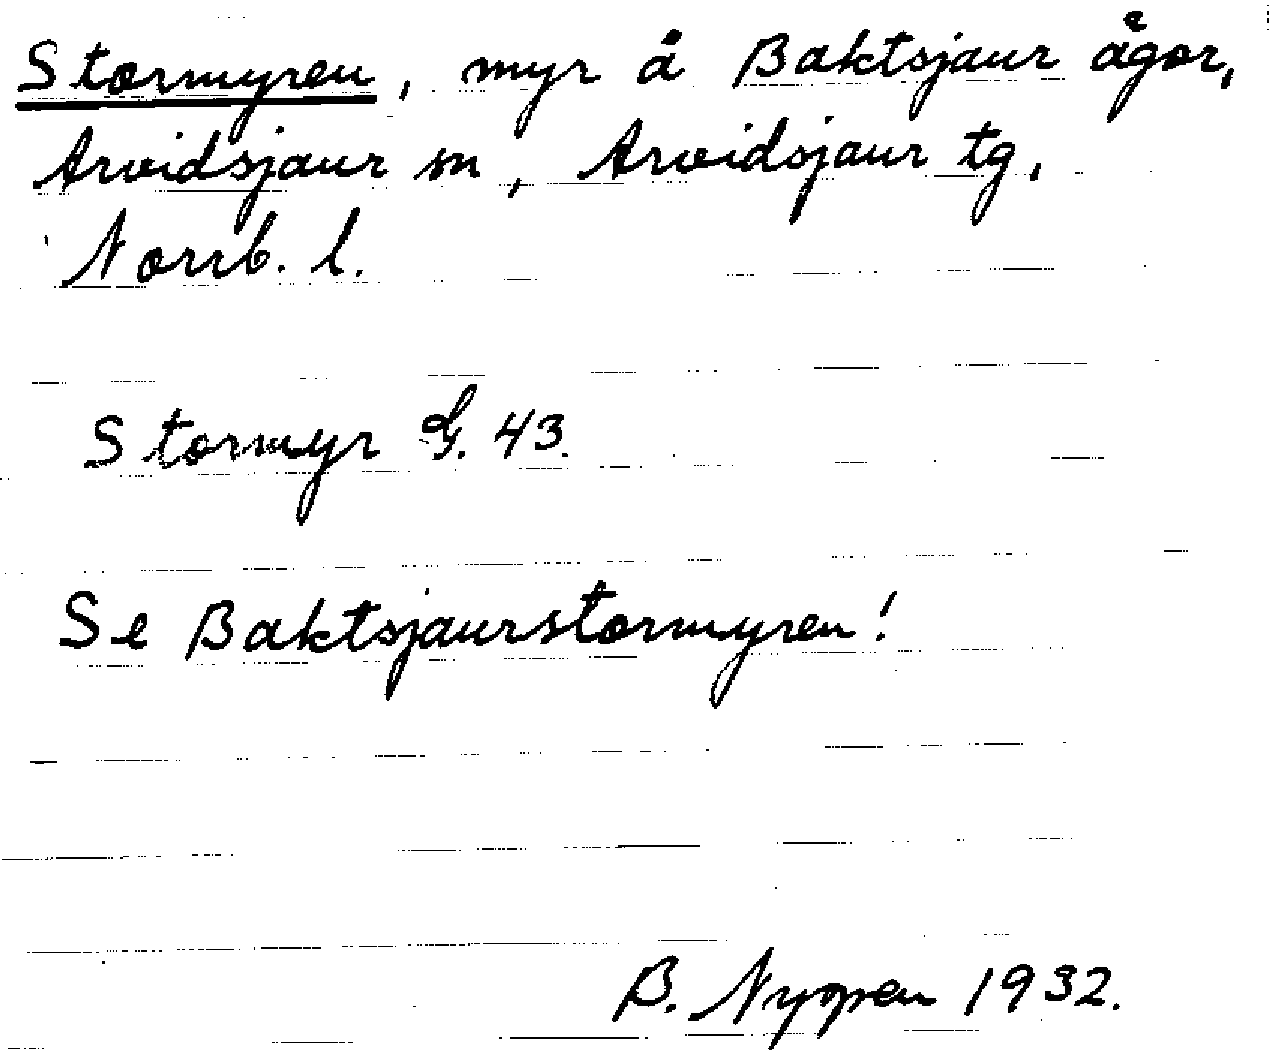 Stormyren, myr å Baktsjaur ägor,
Arvidsjaur sn, Arvidsjaur tg,
Norrb. l.
Stormyr G. 43.
Se Baktsjaurstormyren!
B. Nygren 1932.